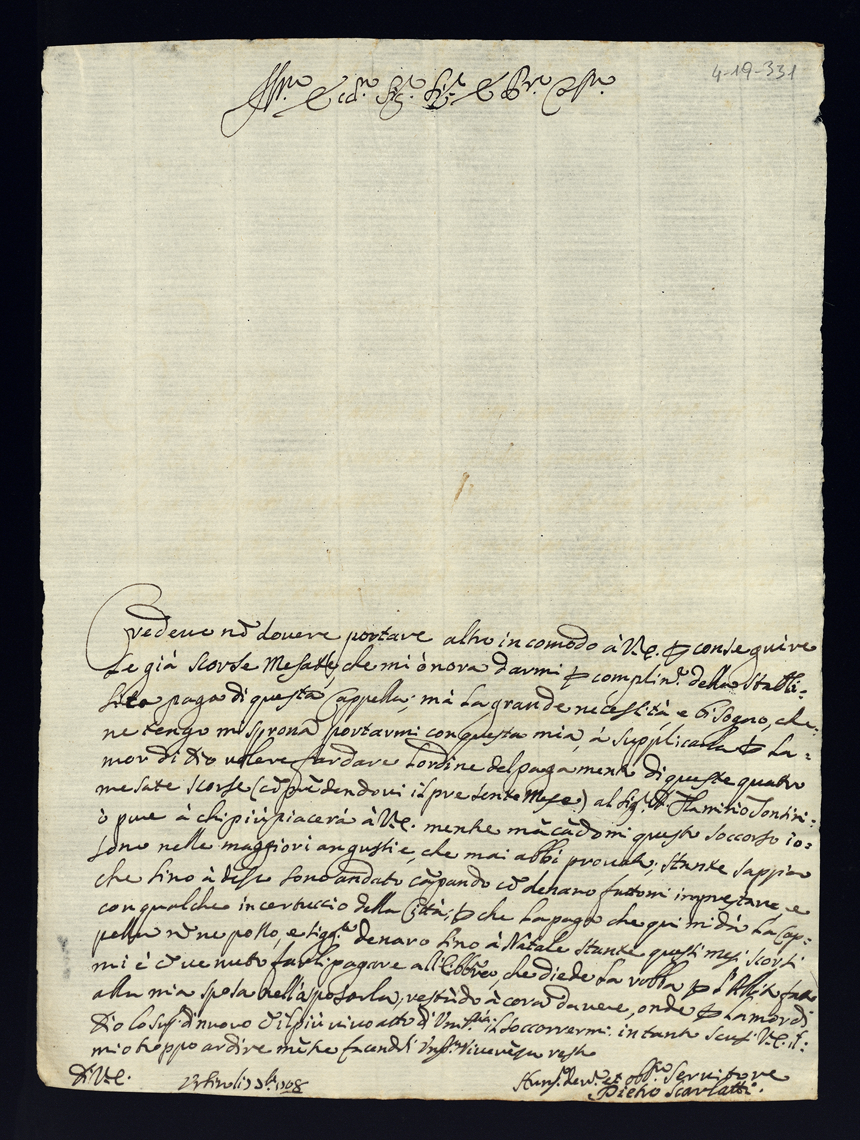 4-19-331
Ill.mo et Ecc.mo Sig.re Sig.re et P.rone
Credevo nõ dovere portare altro incomodo à V.E. p conseguire
le già scorse Mesate, che mi ònora darmi p complim.to della stabbi-
lita paga di questa Cappella; mà la grande necessità, e bisogno, che
ne tengo mi sprona portarmi con questa mia, à supplicarla p la-
mor di Dio volere far dare l'ordine del pagamento di queste quatro
mesate scorse (cõprẽdendovi il presente Mese) al Sig.r Flaminio
ò pure à chi più piacerà à V.E. mentre mãcãdomi questo soccorso io
sono nelle maggiori angustie, che mai abbi provato, stante sappia
che sino à desso sono andato cãpando cõ denaro fattomi imprestare e
con qualche incertuccio della Città, p che la paga che quì mi dà la Cap-
pella nõ ne posso, e denaro sino à Natale stante questi mesi scorsi
mi è cõvenuto farli pagare all'Ebbreo, che diede la robba p l'Abito fatto
alla mia sposa nell'sposarla, restãdo à cora davere, onde p lamor di
Dio lo sup.o di nuovo soccorrermi. in tanto scusi V.E. il
mio troppo ardire mẽtre facendoli resto
Di V.E.
Urbino li 1708
Hum.o dev.o et obb.o Servitore
Pietro Scarlatti.